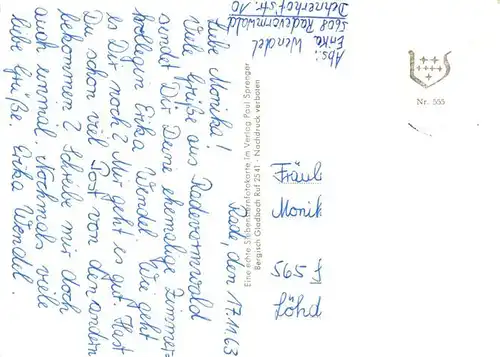 Rade, den 17.11.63
Liebe Monika!
Viele Grüße aus Radevormwald
sendet Dir Deine ehemalige Zimmer=
kollegin Erika Wendel. Wie geht
es Dir noch? Mir geht es gut. Hast
Du schon viel Post von den andern
bekommen? Schreibe mir doch
auch einmal. Nochmals viele
liebe Grüße Erika Wendel.
Abs:
Erika Wendel
5608 Radevormwald
str. 10
Eine echte Siebensternfotokarte im Verlag Paul Sprenger
Bergisch Gladbach Ruf 2541 · Nachdruck verboten
Nr. 555
Fräul
Monik
565
Löhd